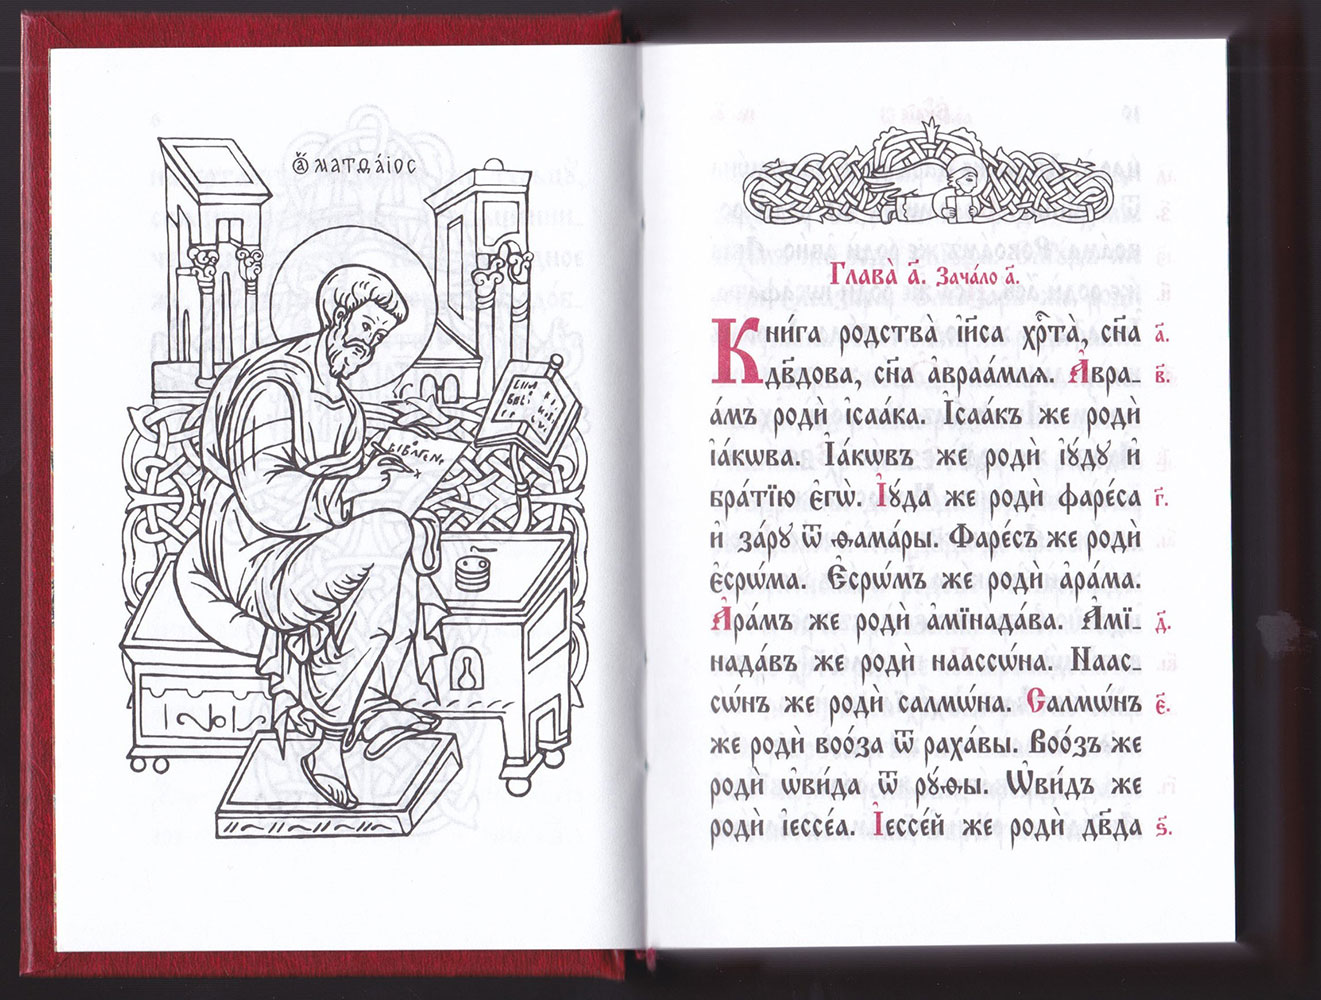 ⓐ҃ ΜΑΤΘΑΙΟΣ
Глава̀ а҃. Зача́ло а҃.
Кни́га родства̀ і҆и҃са хрⷭ҇та̀, сн҃а а҃.
дв҃дова, сн҃а а҆враа́млѧ. А҆вра_ в҃.
а́мъ родѝ і҆саа́ка. І҆саа́къ же родѝ
і҆а́кѡва. І҆а́кѡвъ же родѝ і҆ꙋ́дꙋ и҆
бра́тїю є҆гѡ̀. І҆ꙋ́да же родѝ фаре́са г҃.
и҆ за́рꙋ ѿ ѳама́ры. Фаре́съ же родѝ
є҆срѡ́ма. Є҆срѡ́мъ же родѝ а҆ра́ма.
А҆ра́мъ же родѝ а҆мїнада́ва. А҆мї_ д҃.
нада́въ же родѝ наассѡ́на. Наас_
сѡ́нъ же родѝ салмѡ́на. Салмѡ́нъ є҃.
же родѝ воо́за ѿ раха́вы. Воо́зъ же
родѝ ѡ҆ви́да ѿ рꙋ́ѳы. Ѡ҆ви́дъ же
родѝ і҆ессе́а. І҆ессе́й же родѝ дв҃да ѕ҃.